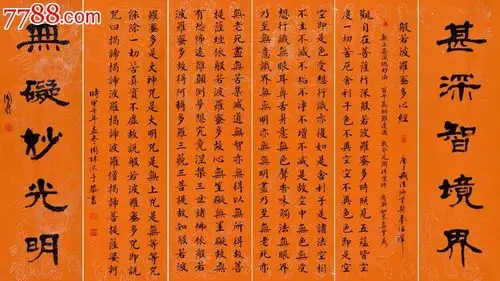 7788.com
甚深智境界
般若波羅蜜多心經
無上甚深微妙法 百千萬劫難遭遇 我今見聞得受持 願解如來真實義
觀自在菩薩行深般若波羅蜜多時照見五蘊皆空
度一切苦厄舍利子色不異空空不異色色即是空
空即是色受想行識亦復如是舍利子是諸法空相
不生不滅不垢不淨不增不減是故空中無色無受
想行識無眼耳鼻舌身意無色聲香味觸法無眼界
乃至無意識界無無明亦無無明盡乃至無老死亦
無老死盡無苦集滅道無智亦無得以無所得故菩
提薩埵依般若波羅蜜多故心無罣礙無罣礙故無
有恐怖遠離顛倒夢想究竟涅槃三世諸佛依般若
波羅蜜多故得阿耨多羅三藐三菩提故知般若波
羅蜜多是大神咒是大明咒是無上咒是無等等咒
能除一切苦真實不虛故說般若波羅蜜多咒即說
咒曰揭諦揭諦波羅揭諦波羅僧揭諦菩提薩婆訶
無礙妙光明